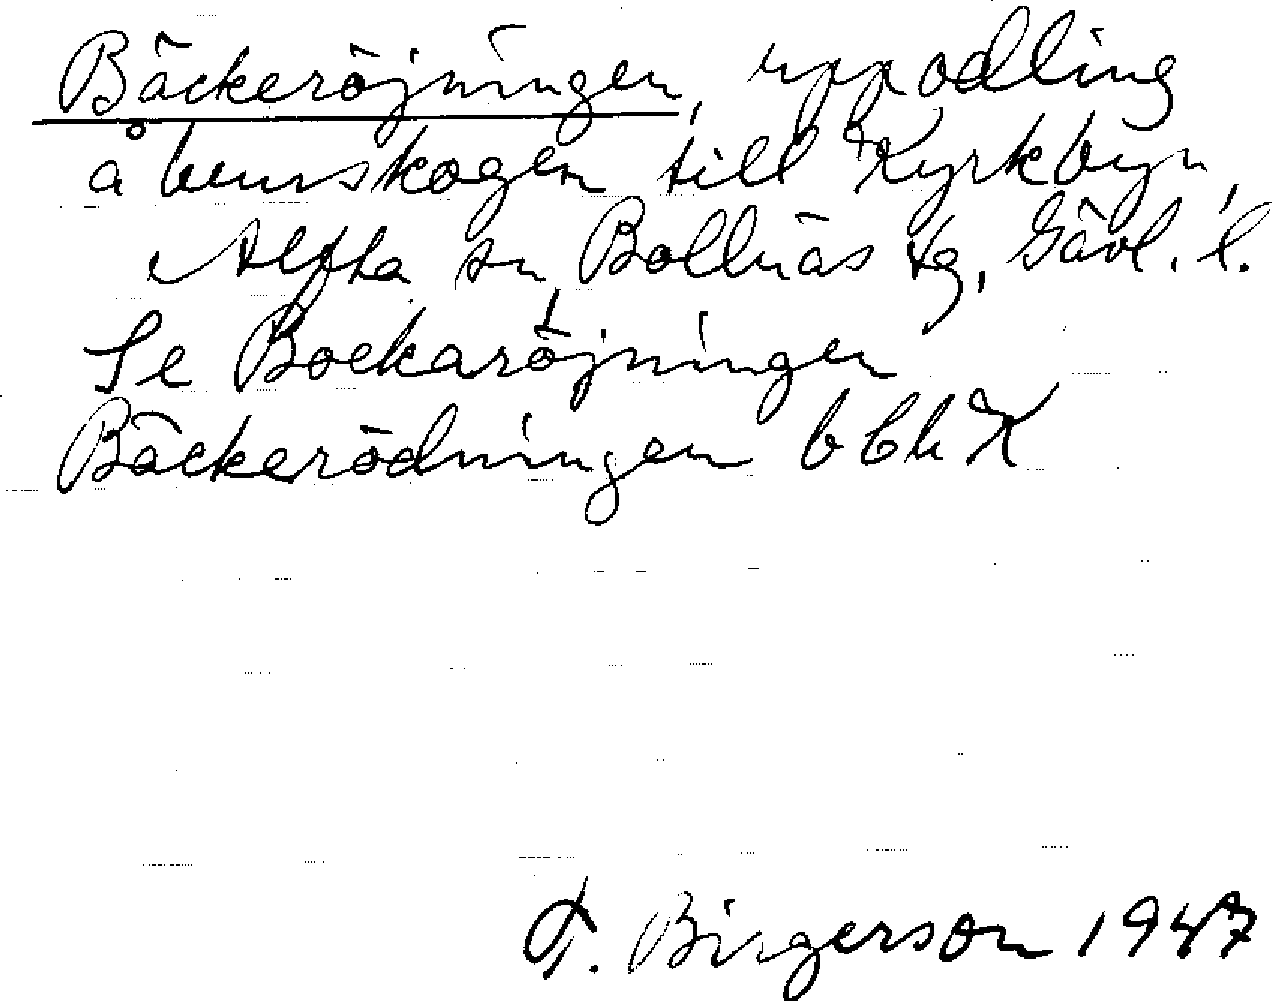 Bäckeröjningen, uppodling
å hemskogen till Kyrkbyn,
Alfta sn, Bollnäs tg, Gävl. l.
Se Bockaröjningen
Bäckerödningen
T. Birgerson 1947